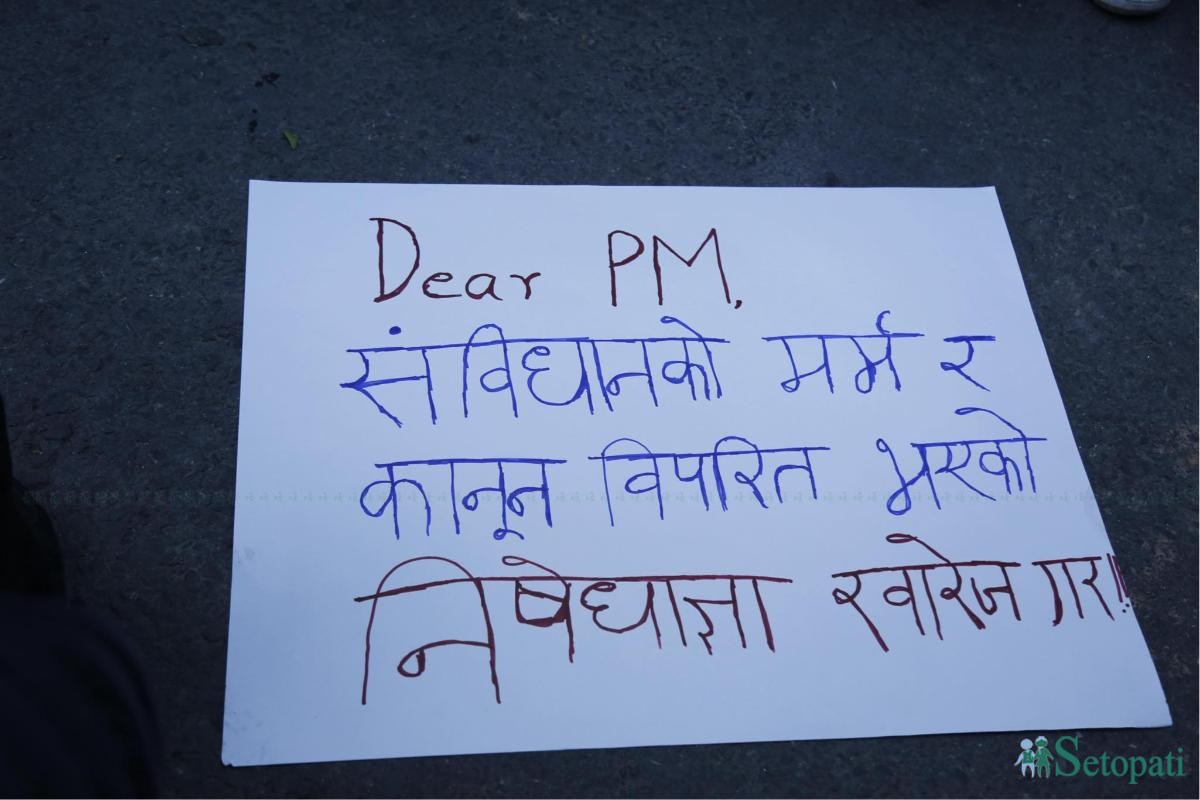 Dear PM,
संविधानको मर्म र
कानून विपरित भएको
निषेधाज्ञा खारेज गर!!
Setopati